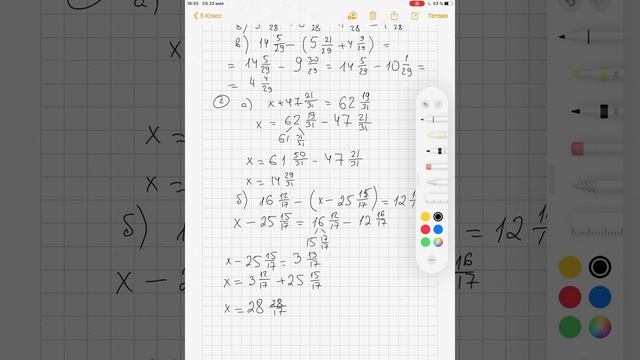 16:55 Сб 23 мая
53 %
5 Класс
Готово
в) 14 5/29 - (5 21/29 + 4 9/29) =
= 14 5/29 - 9 30/29 = 14 5/29 - 10 1/29 =
= 4 4/29
② а) x + 47 21/31 = 62 19/31
x = 62 19/31 - 47 21/31
61 31/31
x = 61 50/31 - 47 21/31
x = 14 29/31
б) 16 12/17 - (x - 25 15/17) = 12
x - 25 15/17 = 16 12/17 - 12 16/17
15 17/17
x - 25 15/17 = 3 13/17
x = 3 13/17 + 25 15/17
x = 28 28/17